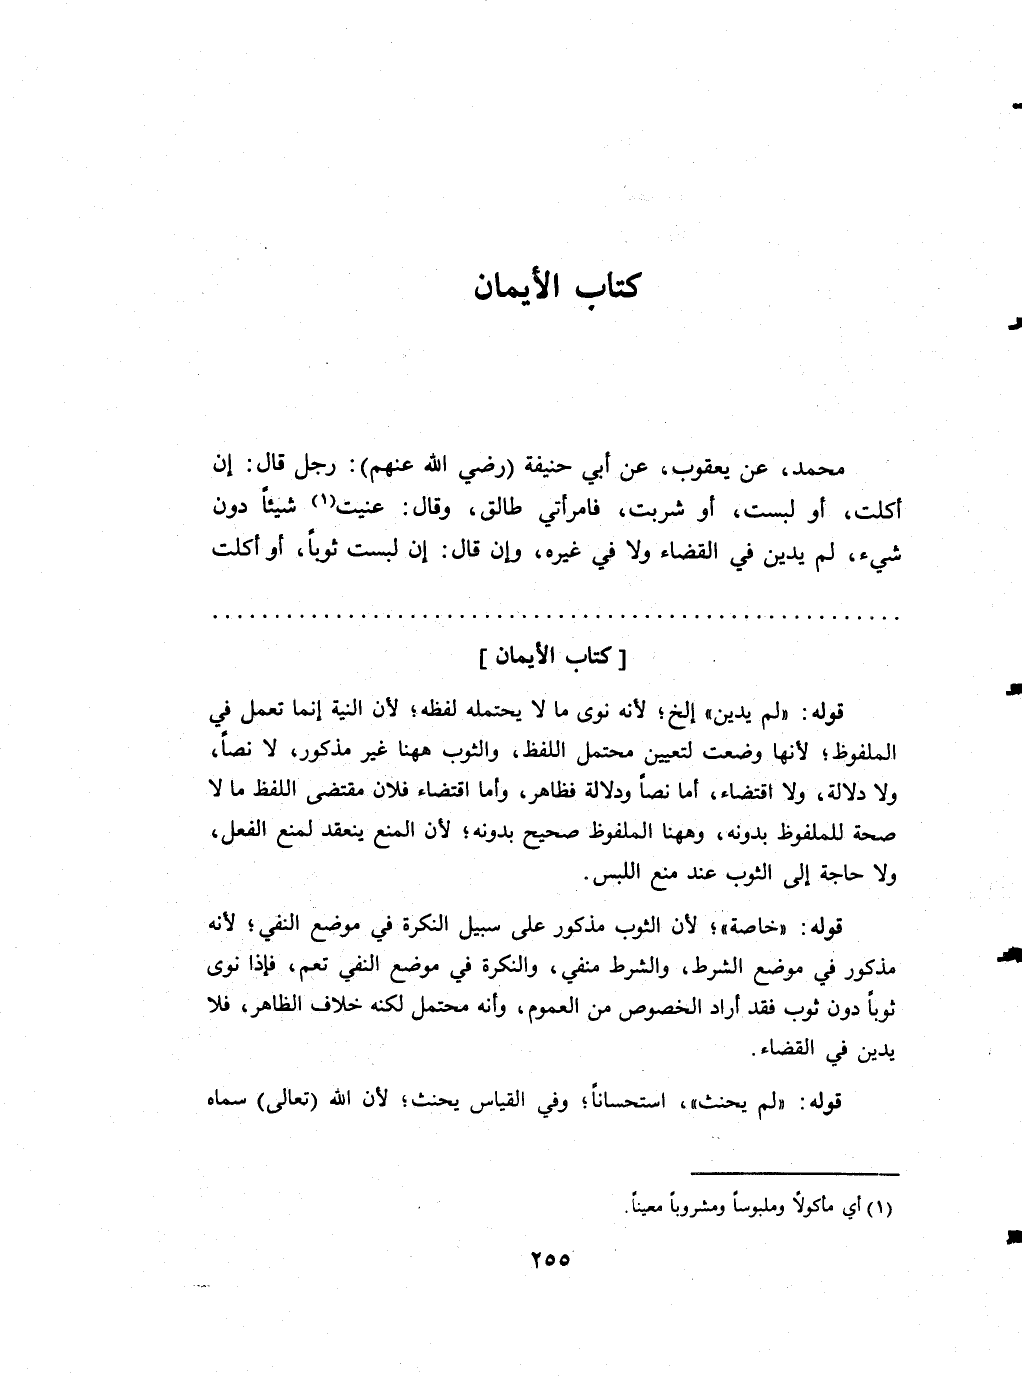 كتاب الأيمان
محمد، عن يعقوب، عن أبي حنيفة (رضي الله عنهم): رجل قال: إن
أكلت، أو لبست، أو شربت، فامرأتي طالق، وقال: عنيت(١) شيئاً دون
شيء، لم يدين في القضاء ولا في غيره، وإن قال: إن لبست ثوباً، أو أكلت
[ كتاب الأيمان ]
قوله: «لم يدين» إلخ؛ لأنه نوى ما لا يحتمله لفظه؛ لأن النية إنما تعمل في
الملفوظ؛ لأنها وضعت لتعيين محتمل اللفظ، والثوب ههنا غير مذكور، لا نصاً،
ولا دلالة، ولا اقتضاء، أما نصاً ودلالة فظاهر، وأما اقتضاء فلان مقتضى اللفظ ما لا
صحة للملفوظ بدونه، وههنا الملفوظ صحيح بدونه؛ لأن المنع ينعقد لمنع الفعل،
ولا حاجة إلى الثوب عند منع اللبس.
قوله: «خاصة»؛ لأن الثوب مذكور على سبيل النكرة في موضع النفي؛ لأنه
مذكور في موضع الشرط، والشرط منفي، والنكرة في موضع النفي تعم، فإذا نوى
ثوباً دون ثوب فقد أراد الخصوص من العموم، وأنه محتمل لكنه خلاف الظاهر، فلا
يدين في القضاء.
قوله: «لم يحنث»، استحساناً؛ وفي القياس يحنث؛ لأن الله (تعالى) سماه
(١) أي مأكولاً وملبوساً ومشروباً معيناً.
٢٥٥